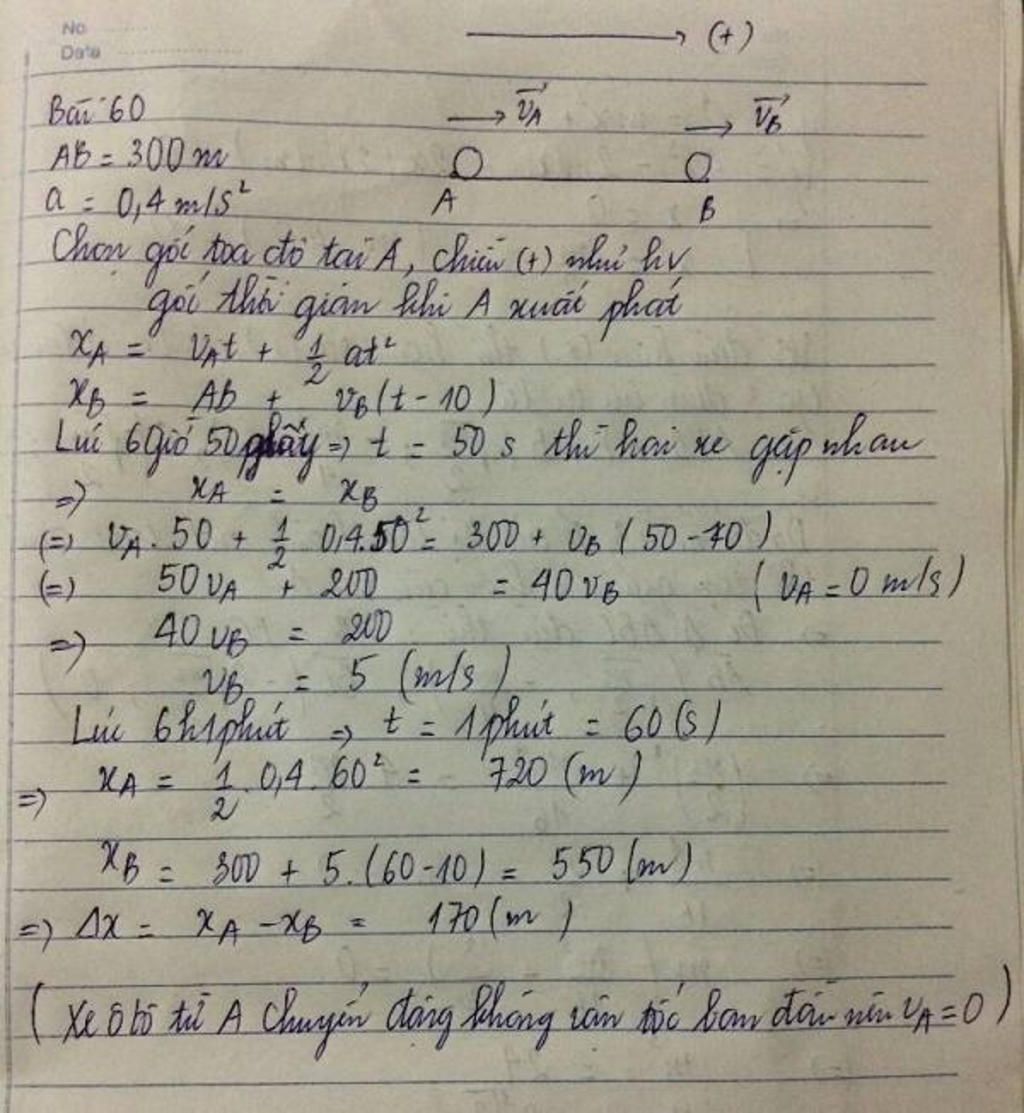 No
Date
(+)
Bài 60
AB = 300 m
a = 0,4 m/s²
v⃗A v⃗B
A B
Chọn gốc tọa độ tại A, chiều (+) như hv
gốc thời gian khi A xuất phát
xA = vAt + 1/2 at²
xB = AB + vB(t - 10)
Lúc 6 giờ 50 giây => t = 50 s thì hai xe gặp nhau
=> xA = xB
(=) vA . 50 + 1/2 0,4.50² = 300 + vB (50 - 10)
(=) 50vA + 200 = 40vB (vA = 0 m/s)
=> 40vB = 200
vB = 5 (m/s)
Lúc 6h1phút => t = 1phút = 60(s)
=> xA = 1/2 . 0,4 . 60² = 720 (m)
xB = 300 + 5.(60-10) = 550 (m)
=> Δx = xA - xB = 170 (m)
(Xe ô tô từ A chuyển động không vận tốc ban đầu nên vA = 0)